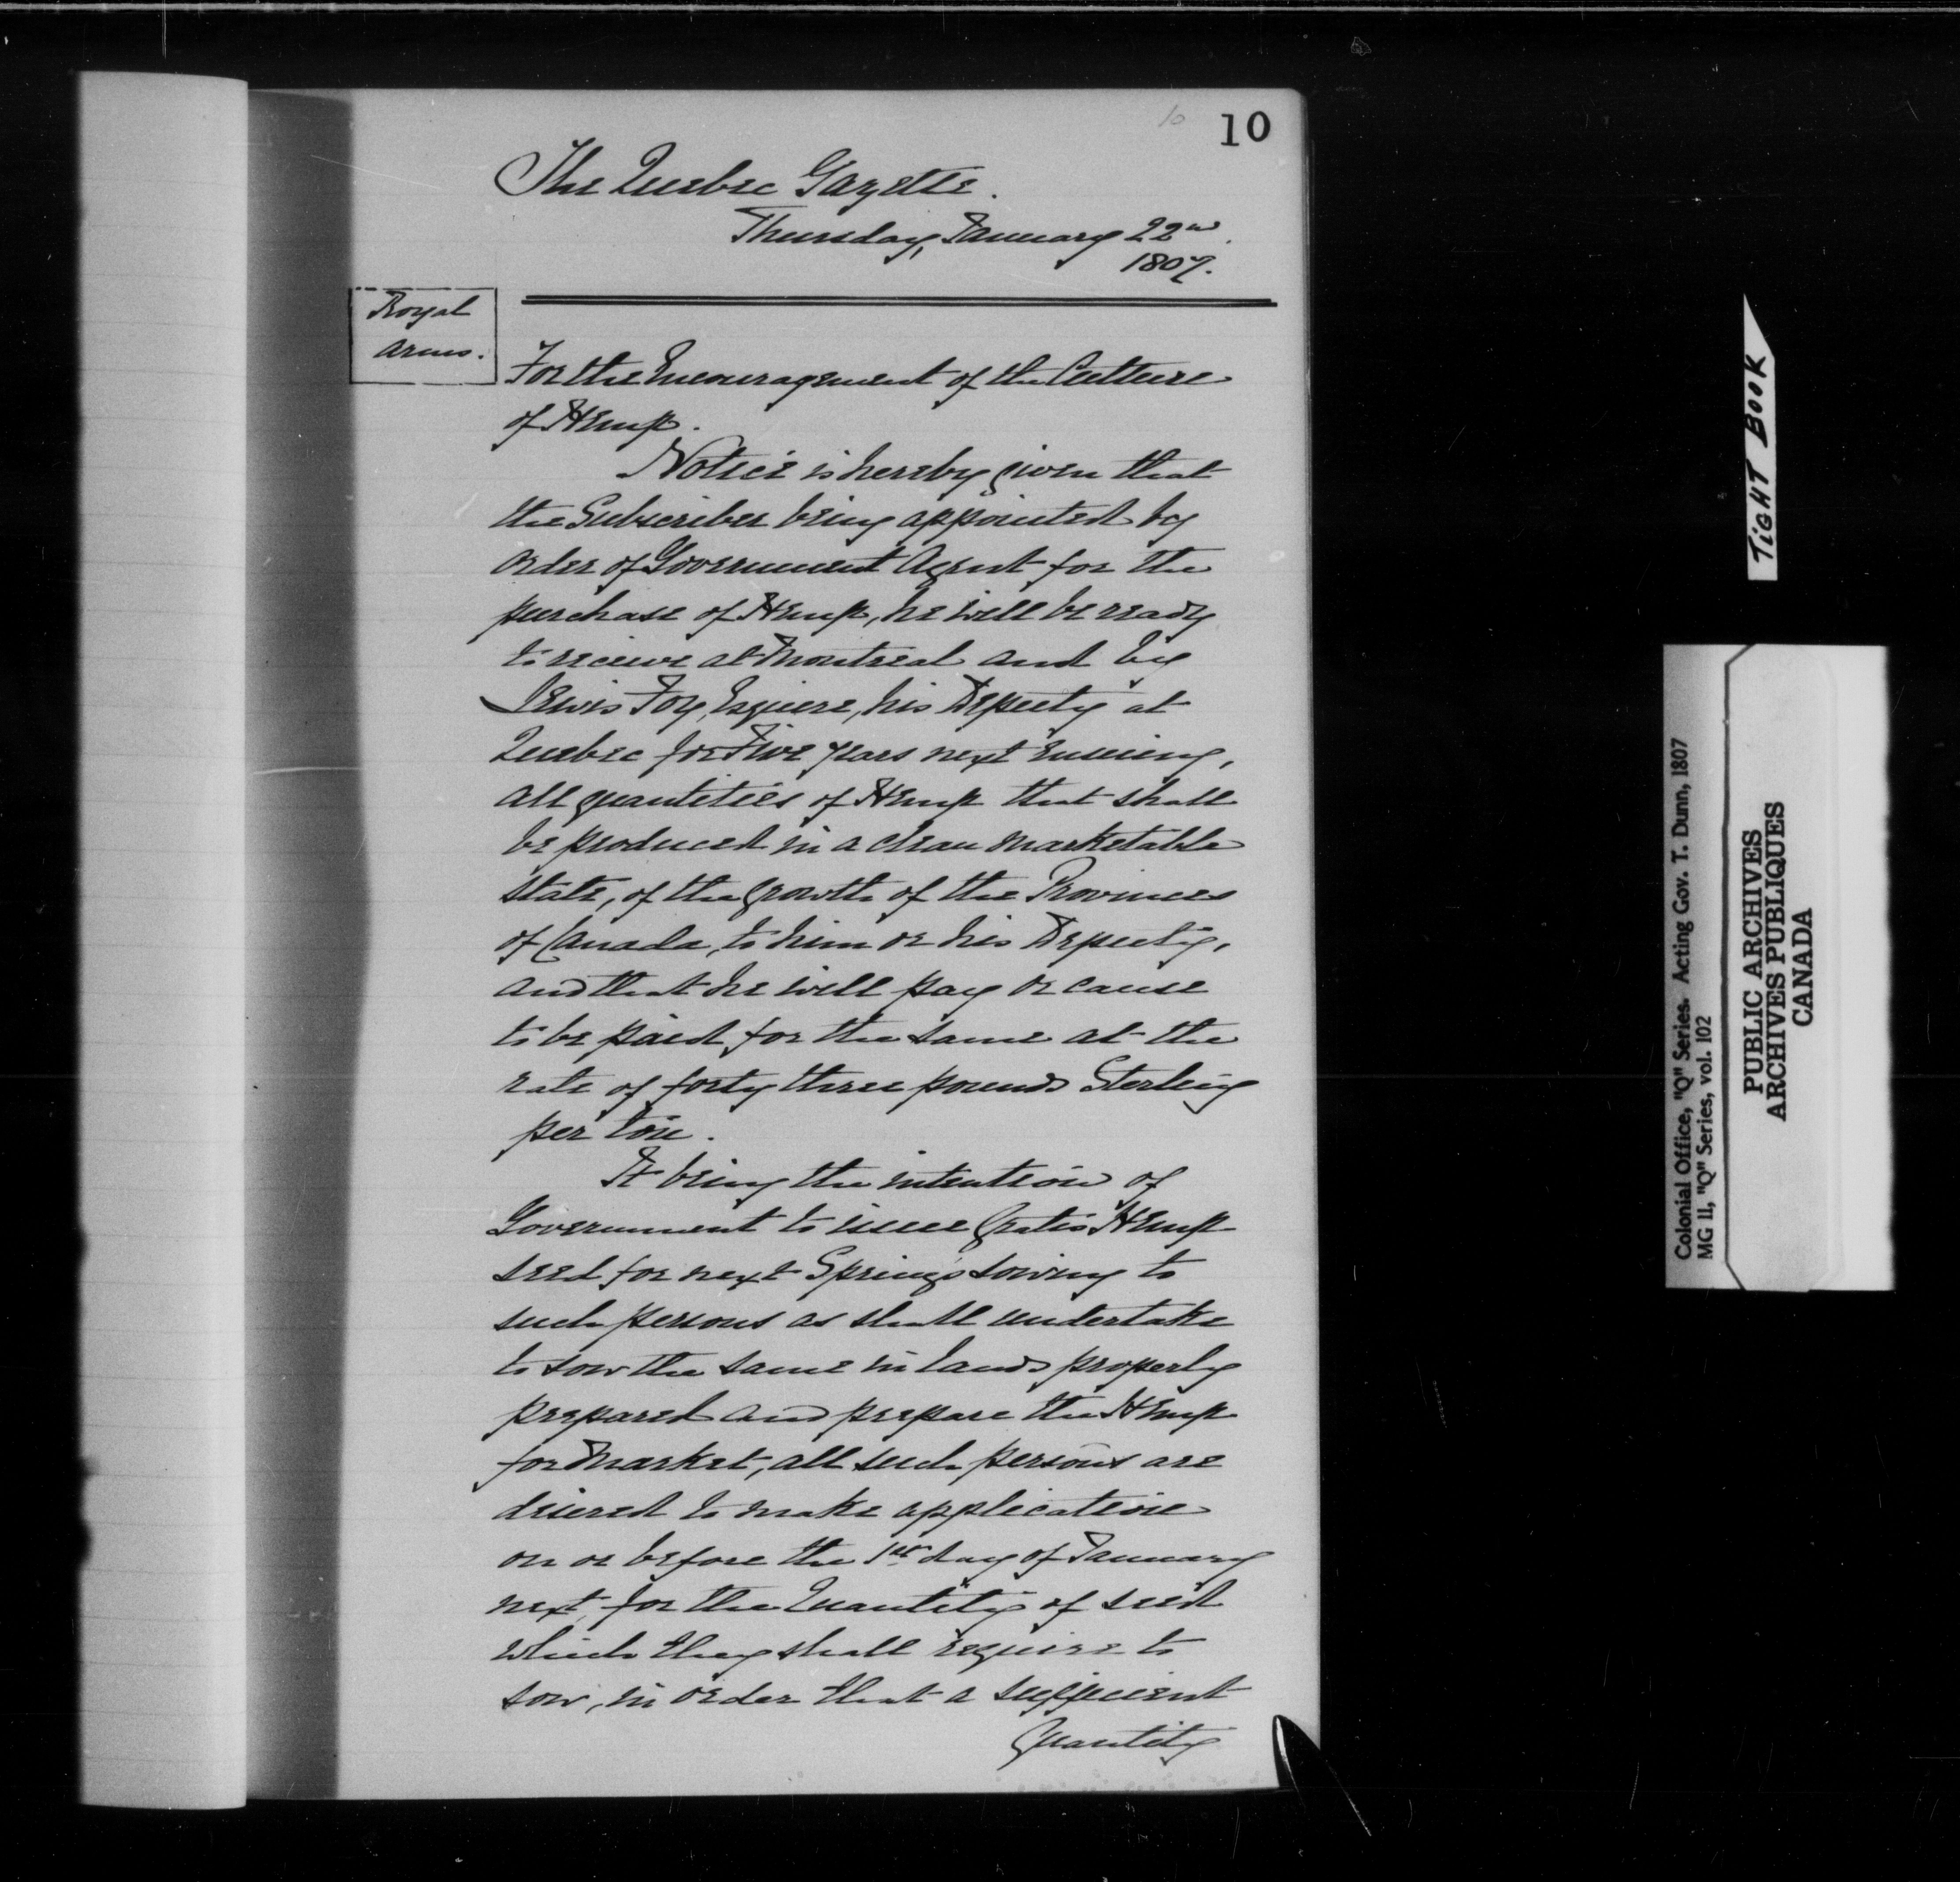 10
10
The Quebec Gazette.
Thursday, January 22nd
1807.
Royal
Arms.
For the Encouragement of the Culture
of Hemp.
Notice is hereby given that
the Subscriber being appointed by
order of Government Agent for the
purchase of Hemp, he will be ready
to receive at Montreal and by
Lewis Foy, Esquire, his Deputy at
Quebec for Five years next ensuing,
all quantities of Hemp that shall
be produced in a clean marketable
state, of the growth of the Provinces
of Canada, to him or his Deputy,
and that he will pay or cause
to be paid for the same at the
rate of forty three pounds Sterling
per ton.
It being the intention of
Government to issue Gratis Hemp
seed for next Spring's sowing to
such persons as shall undertake
to sow the same in lands properly
prepared and prepare the Hemp
for Market, all such persons are
desired to make application
on or before the 1st day of January
next, for the Quantity of seed
which they shall require to
sow, in order that a sufficient
Quantity
TIGHT BOOK
Colonial Office, "Q" Series. Acting Gov. T. Dunn, 1807
MG 11, "Q" Series, vol. 102
PUBLIC ARCHIVES
ARCHIVES PUBLIQUES
CANADA